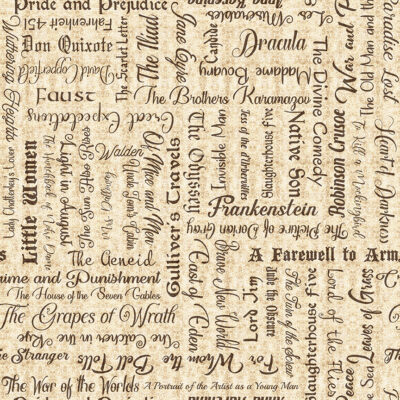 Pride and Prejudice
Fahrenheit 451
Don Quixote
David Copperfield
Wuthering Heights
The Scarlet Letter
The Iliad
Jane Eyre
Candide
Les Miserables
Dracula
Madame Bovary
The Divine Comedy
War and
The Old Man and
Paradise Lost
Faust
The Brothers Karamazov
Great Expectations
Lady Chatterley's Lover
Little Women
The Hunchback of Notre Dame
Light in August
The Sun Also Rises
Walden
Uncle Tom's Cabin
Of Mice and Men
Gulliver's Travels
The Odyssey
Invisible Man
Tess of the d'Urbervilles
Slaughterhouse Five
Native Son
Robinson Crusoe
To Kill a Mockingbird
Heart of Darkness
Frankenstein
The Picture of Dorian Gray
The Aeneid
A Farewell to Arms
Crime and Punishment
The House of the Seven Gables
The Grapes of Wrath
The Catcher in the Rye
The Stranger
For Whom the Bell Tolls
East of Eden
Brave New World
Lord Jim
Jude the Obscure
The Turn of the Screw
Slaughterhouse Five
Lord of the Flies
Peace
Leaves of Grass
The War of the Worlds
A Portrait of the Artist as a Young Man